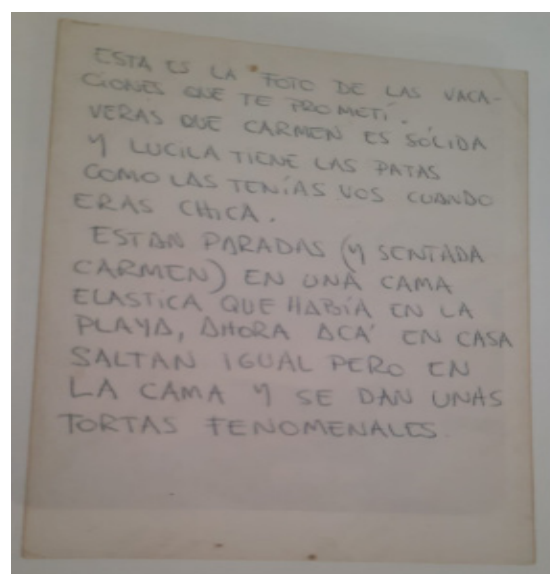 ESTA ES LA FOTO DE LAS VACA-
CIONES QUE TE PROMETÍ.
VERÁS QUE CARMEN ES SÓLIDA
Y LUCILA TIENE LAS PATAS
COMO LAS TENÍAS VOS CUANDO
ERAS CHICA.
ESTÁN PARADAS (Y SENTADA
CARMEN) EN UNA CAMA
ELASTICA QUE HABÍA EN LA
PLAYA, AHORA ACÁ EN CASA
SALTAN IGUAL PERO EN
LA CAMA Y SE DAN UNAS
TORTAS FENOMENALES.